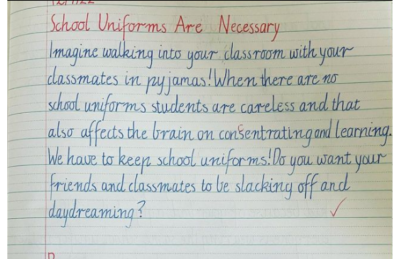 School Uniforms Are Necessary
Imagine walking into your classroom with your
classmates in pyjamas! When there are no
school uniforms students are careless and that
also affects the brain on consentrating and learning.
We have to keep school uniforms! Do you want your
friends and classmates to be slacking off and
daydreaming?